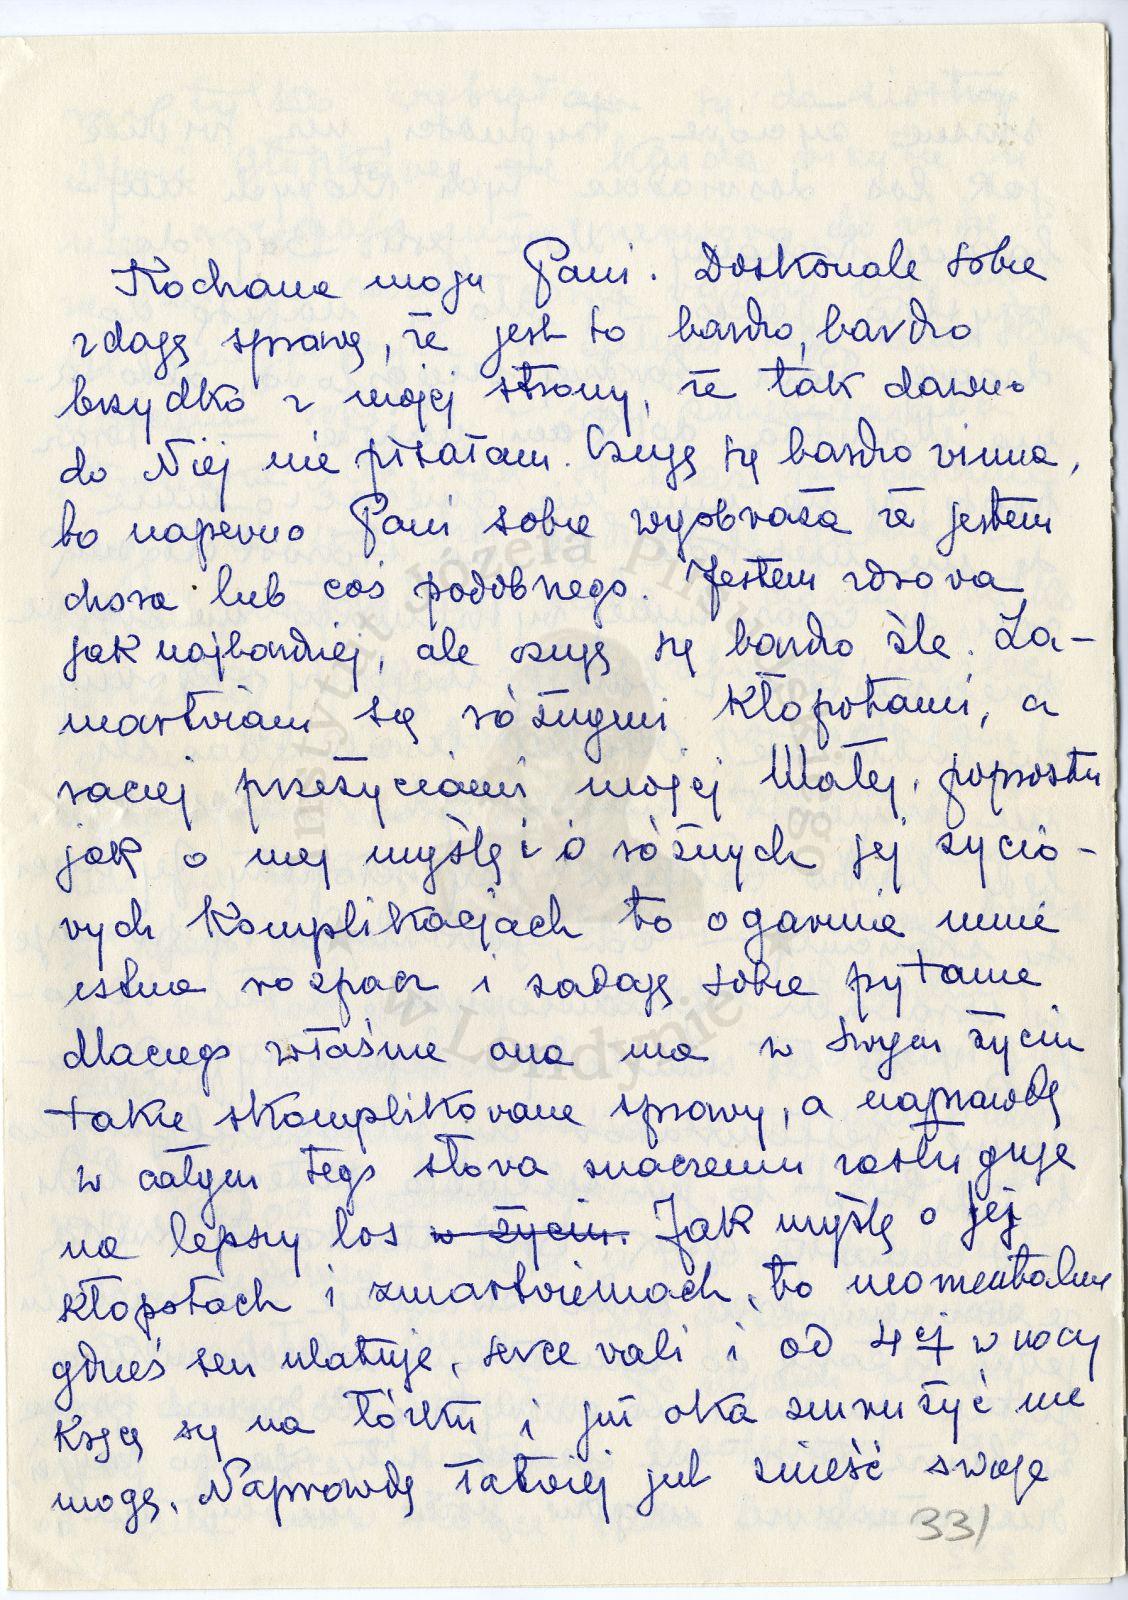 Kochana moja Pani. Doskonale sobie
zdaję sprawę, że jest to bardzo, bardzo
brzydko z mojej strony, że tak dawno
do Niej nie pisałam. Czuję się bardzo winna,
bo napewno Pani sobie wyobraża że jestem
chora lub coś podobnego. Jestem zdrowa
jak najbardziej, ale czuję się bardzo źle. Za-
martwiam się różnymi kłopotami, a
raczej przeżyciami mojej Małej, poprostu
jak o niej myślę i o różnych jej życio-
wych komplikacjach to ogarnia mnie
istna rozpacz i zadaję sobie pytanie
dlaczego właśnie ona ma w swym życiu
takie skomplikowane sprawy, a naprawdę
w całym tego słowa znaczeniu zasługuje
na lepszy los w życiu. Jak myślę o jej
kłopotach i zmartwieniach, to momentalnie
gdzieś sen ulatuje, serce wali i od 4ej w nocy
kręcę się na łóżku i już oka zmrużyć nie
mogę. Naprawdę łatwiej jest znieść swoje
33/
Instytut Józefa Piłsudskiego
w Londynie